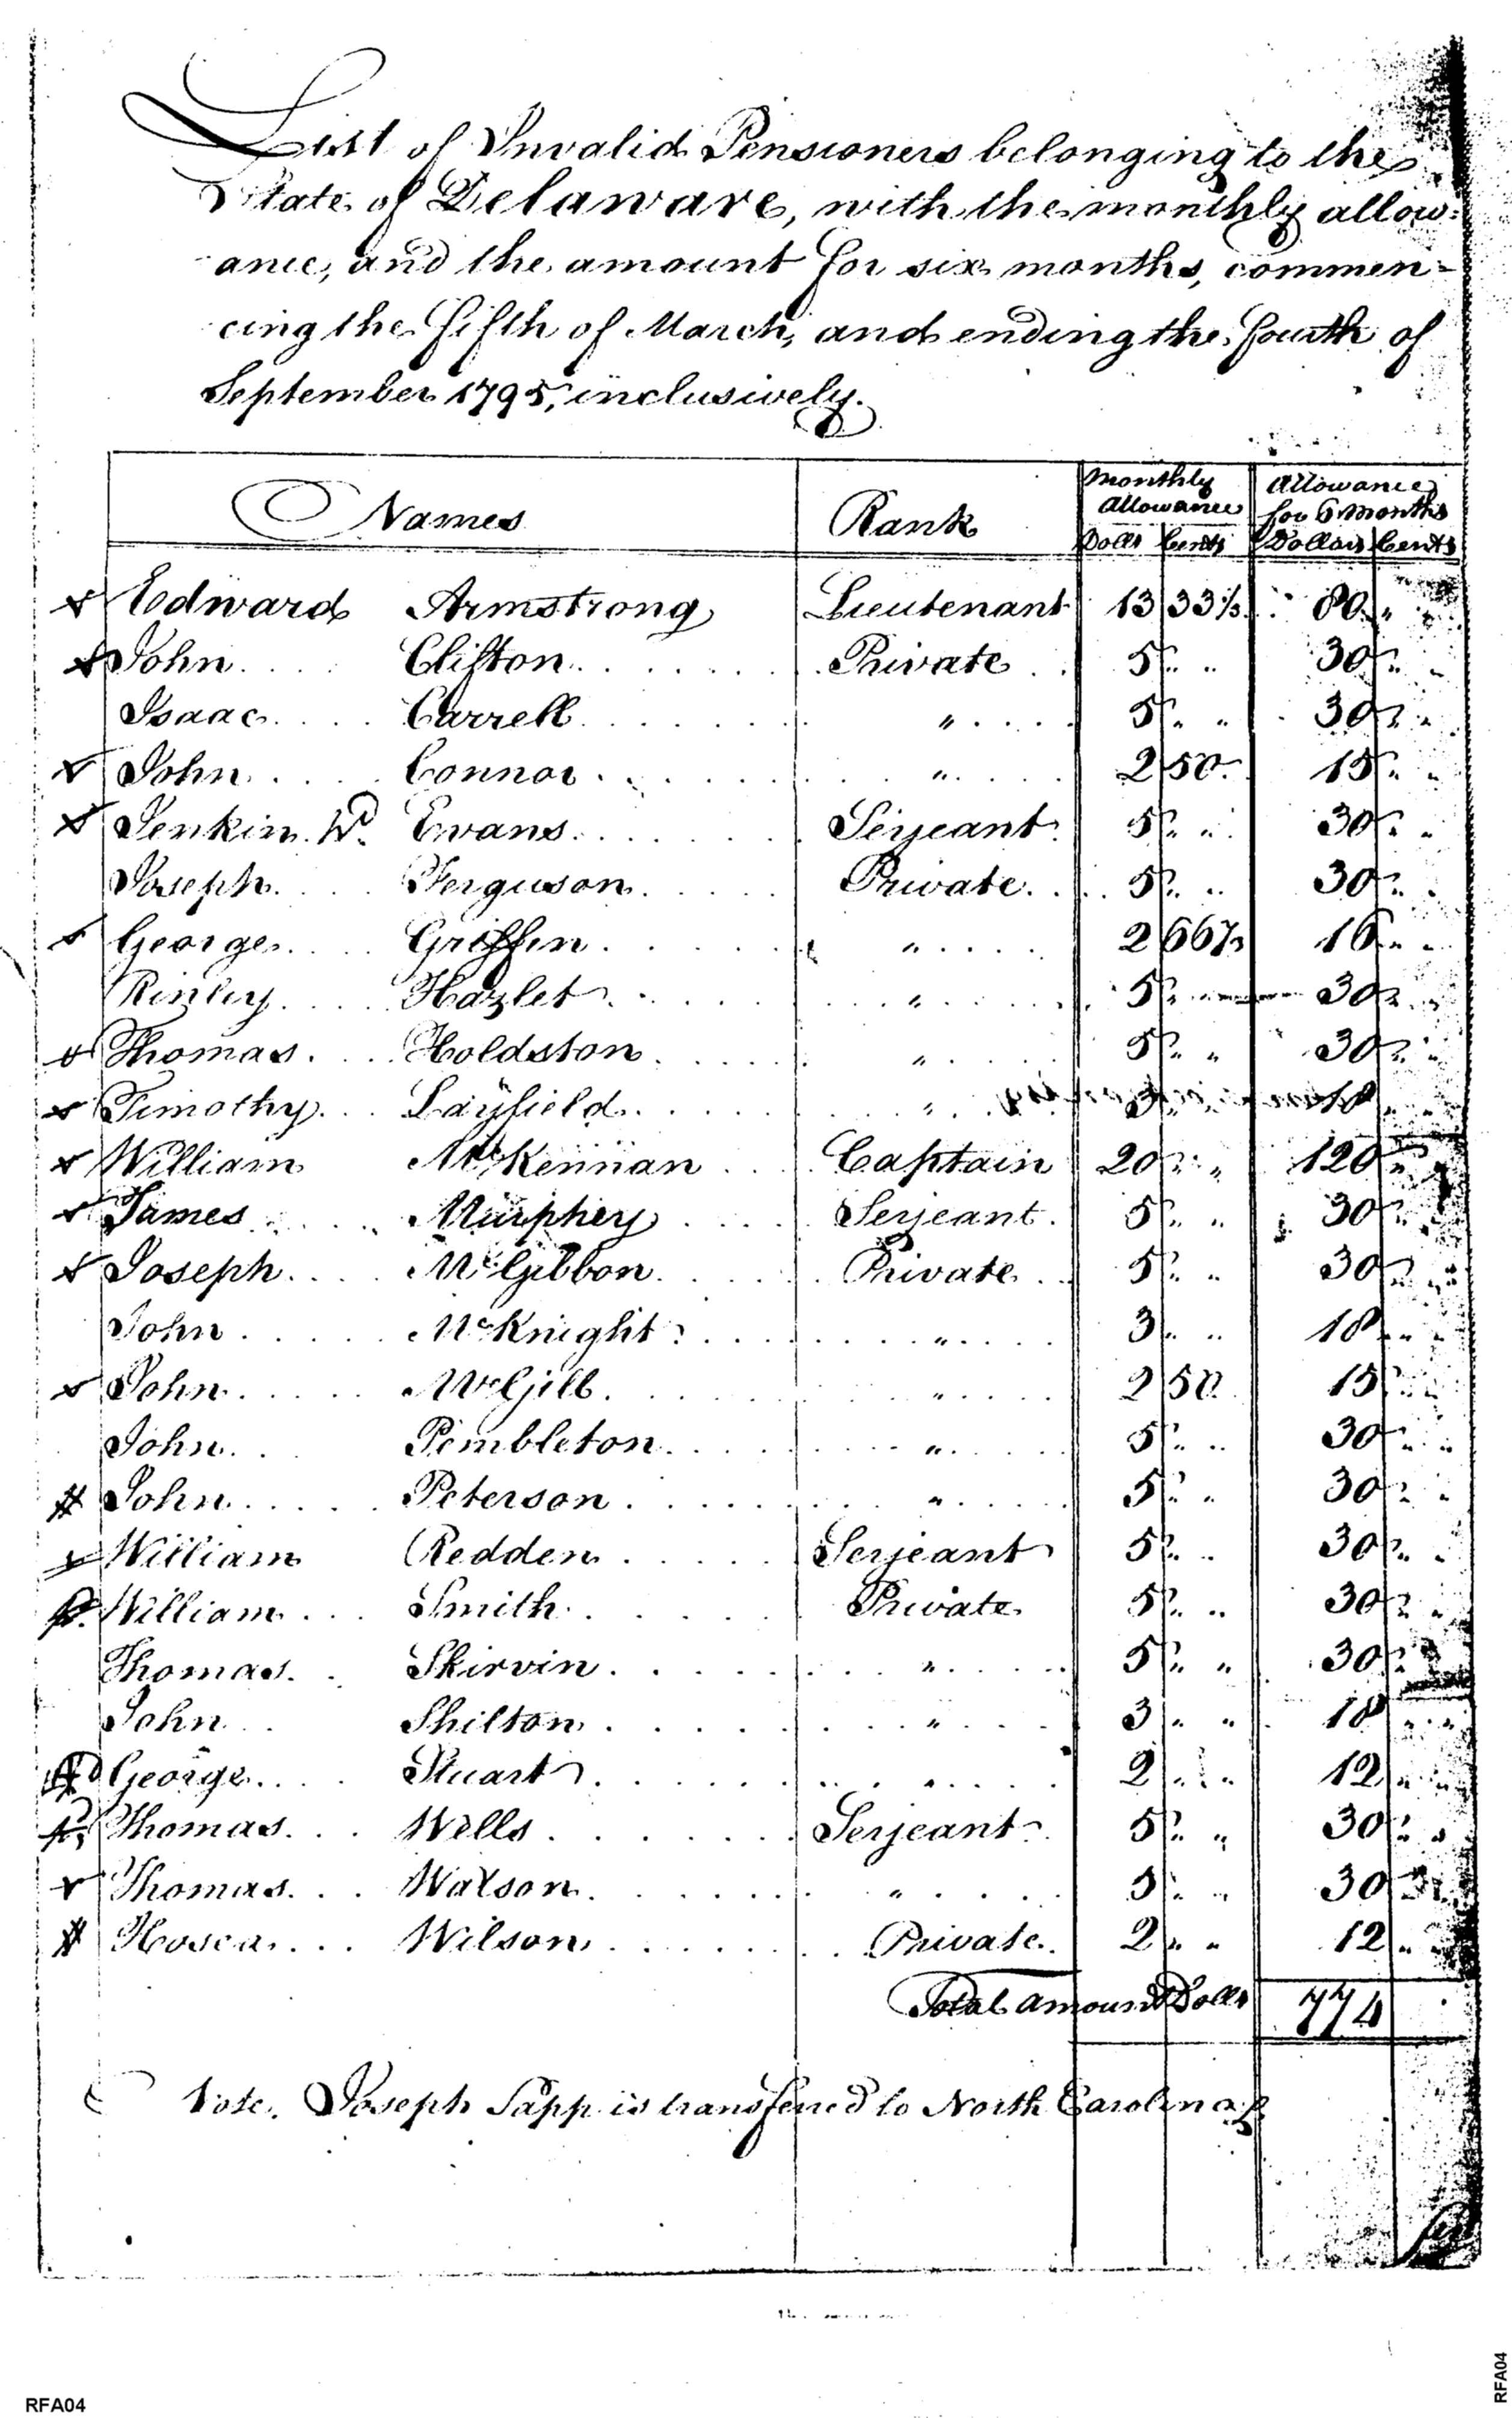 List of Invalid Pensioners belonging to the
State of Delaware, with the monthly allow=
ance, and the amount for six months, commen=
cing the fifth of March, and ending the fourth of
September 1795, inclusively.
Names Rank Monthly Allowance Allowance for 6 Months
Dolls Cents Dollars Cents
Edward Armstrong Lieutenant 13 33⅓ 80 „
John Clifton Private 5 „ „ 30 „ „
Isaac Carrell „ 5 „ „ 30 „ „
John Connor „ 2 50 15 „ „
Jenkin Wᵈ Evans Serjeant 5 „ „ 30 „ „
Joseph Ferguson Private 5 „ „ 30 „
George Griffin „ 2 66⅔ 16 „ „
Hazlet „ 5 „ 30 „
Thomas Holdston „ 5 „ „ 30 „ „
Timothy Layfield „ 3 „ „ 18 „ „
William McKennan Captain 20 „ „ 120 „
James Murphey Serjeant 5 „ „ 30 „
Joseph McGibbon Private 5 „ „ 30 „
John McKnight „ 3 „ „ 18 „ „
John McGill „ 2 50 15 „
John Pembleton „ 5 „ „ 30 „ „
John Peterson „ 5 „ „ 30 „ „
William Redden Serjeant 5 „ „ 30 „ „
William Smith Private 5 „ „ 30 „ „
Thomas Skirvin „ 5 „ „ 30 „
John Shilton „ 3 „ „ 18 „ „
George Stuart „ 2 „ „ 12 „ „
Thomas Wells Serjeant 5 „ „ 30 „ „
Thomas Watson „ 5 „ „ 30 „
Hosea Wilson Private 2 „ „ 12 „
Total amount Dolls 774
Note. Joseph Sapp is transferred to North Carolina
RFA04
RFA04